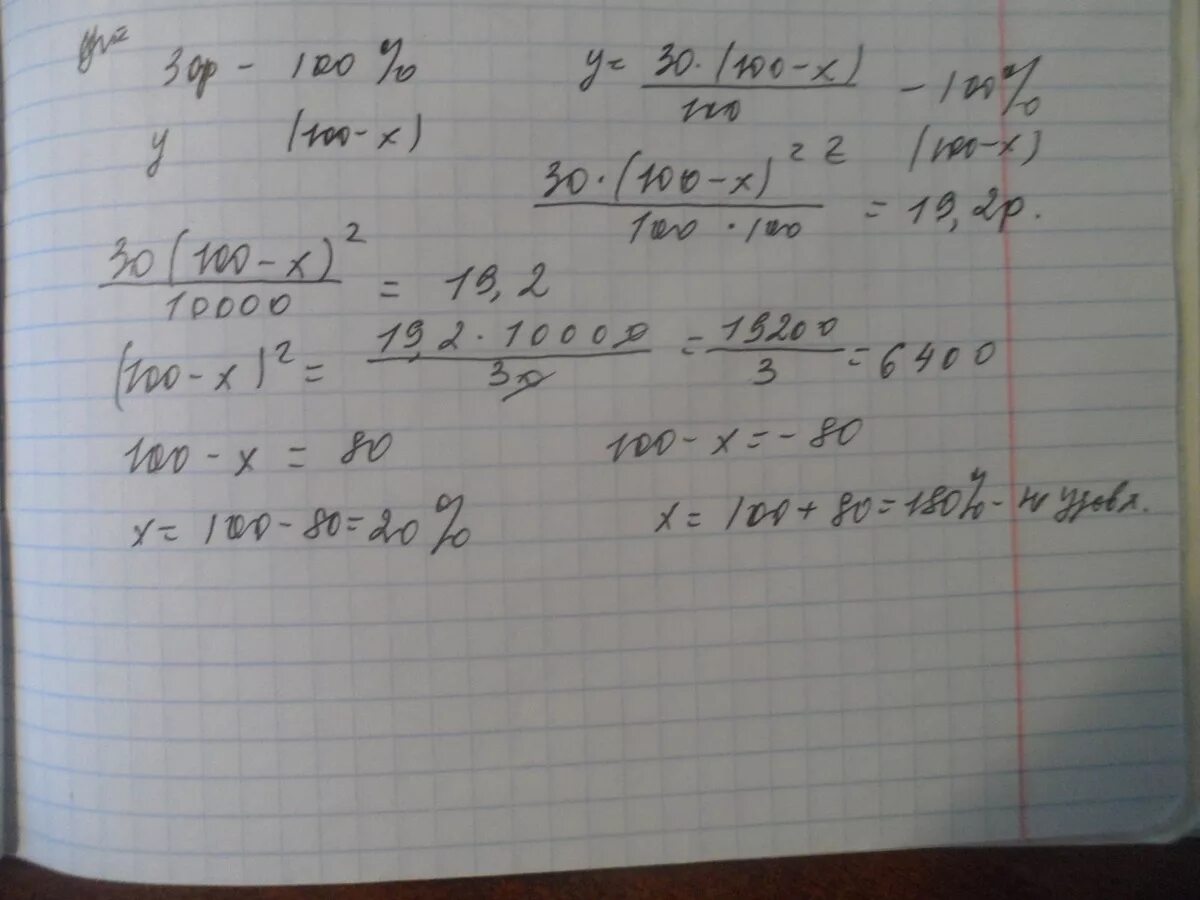 30р - 100%
y (100-x)
y = 30·(100-x) / 100 - 100%
z (100-x)
30·(100-x)² / 100·100 = 19,2р.
30(100-x)² / 10000 = 19,2
(100-x)² = 19,2·10000 / 30 = 19200 / 3 = 6400
100-x = 80
100-x = -80
x = 100-80=20%
x = 100+80=180% - не удовл.